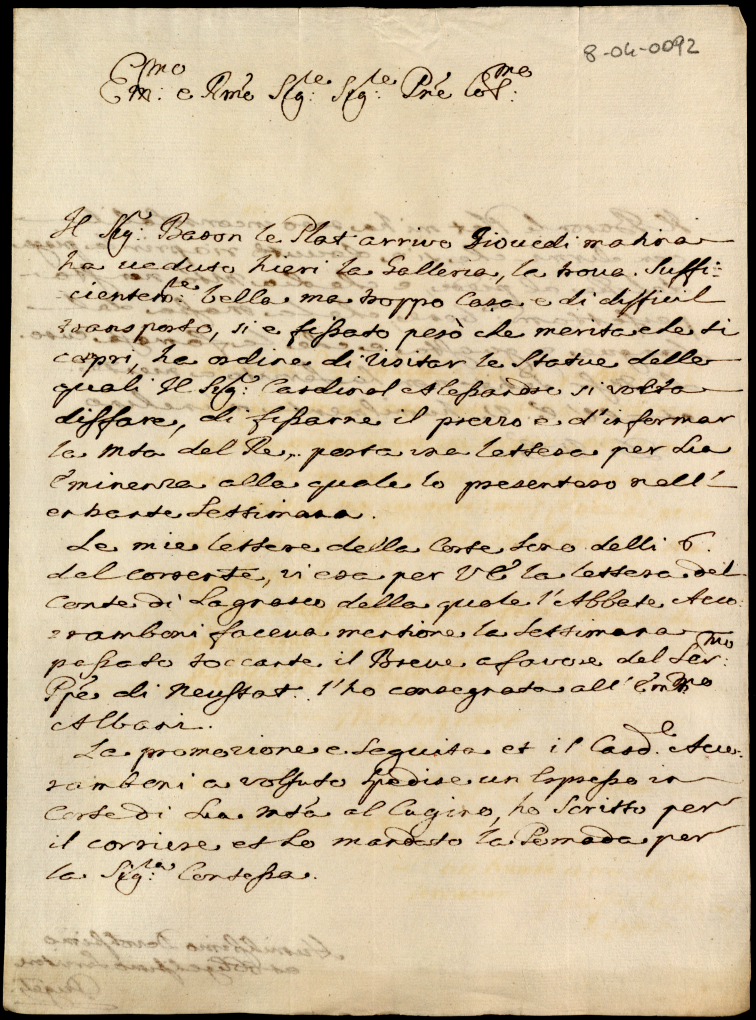 8-04-0092
Em:mo e Rmo Sig:le Sig:le Pne Col:mo
Il Sig: Baron le Plat arrivo Giovedi matina
ha veduto hieri la Galleria, la trova Suffi
cientem:te bella ma troppo Cara e di difficil
transporto, si e fissato però che merita che si
capri, ha ordine di visitar le Statue delle
quali Il Sig: Cardinal Alessandro si volta
disffare, di fissarne il prezzo e d'informar
la Mta del Re, porta una lettera per Sua
Eminenza alla quale lo presentero nell'
entrante Settimana.
Le mie lettere della Corte Sono delli 6.
del corrente, vi era per VE la lettera del
Conte di Lagnasco della quale l'Abbate Acco:
ramboni faceva mentione la Settimana
passato toccante il Breve a favore del Ser:mo
Ppe di Neustat. l'ho consegnata all' Emmo
Albani.
La promozione e Seguita et il Card:e Acco:
ramboni a volsuto spedire un Espresso in
Corte di Sua Mtà al Cugino, ho Scritto per
il corriere et ho mandato la Pomada per
la Sig:ra Contessa.